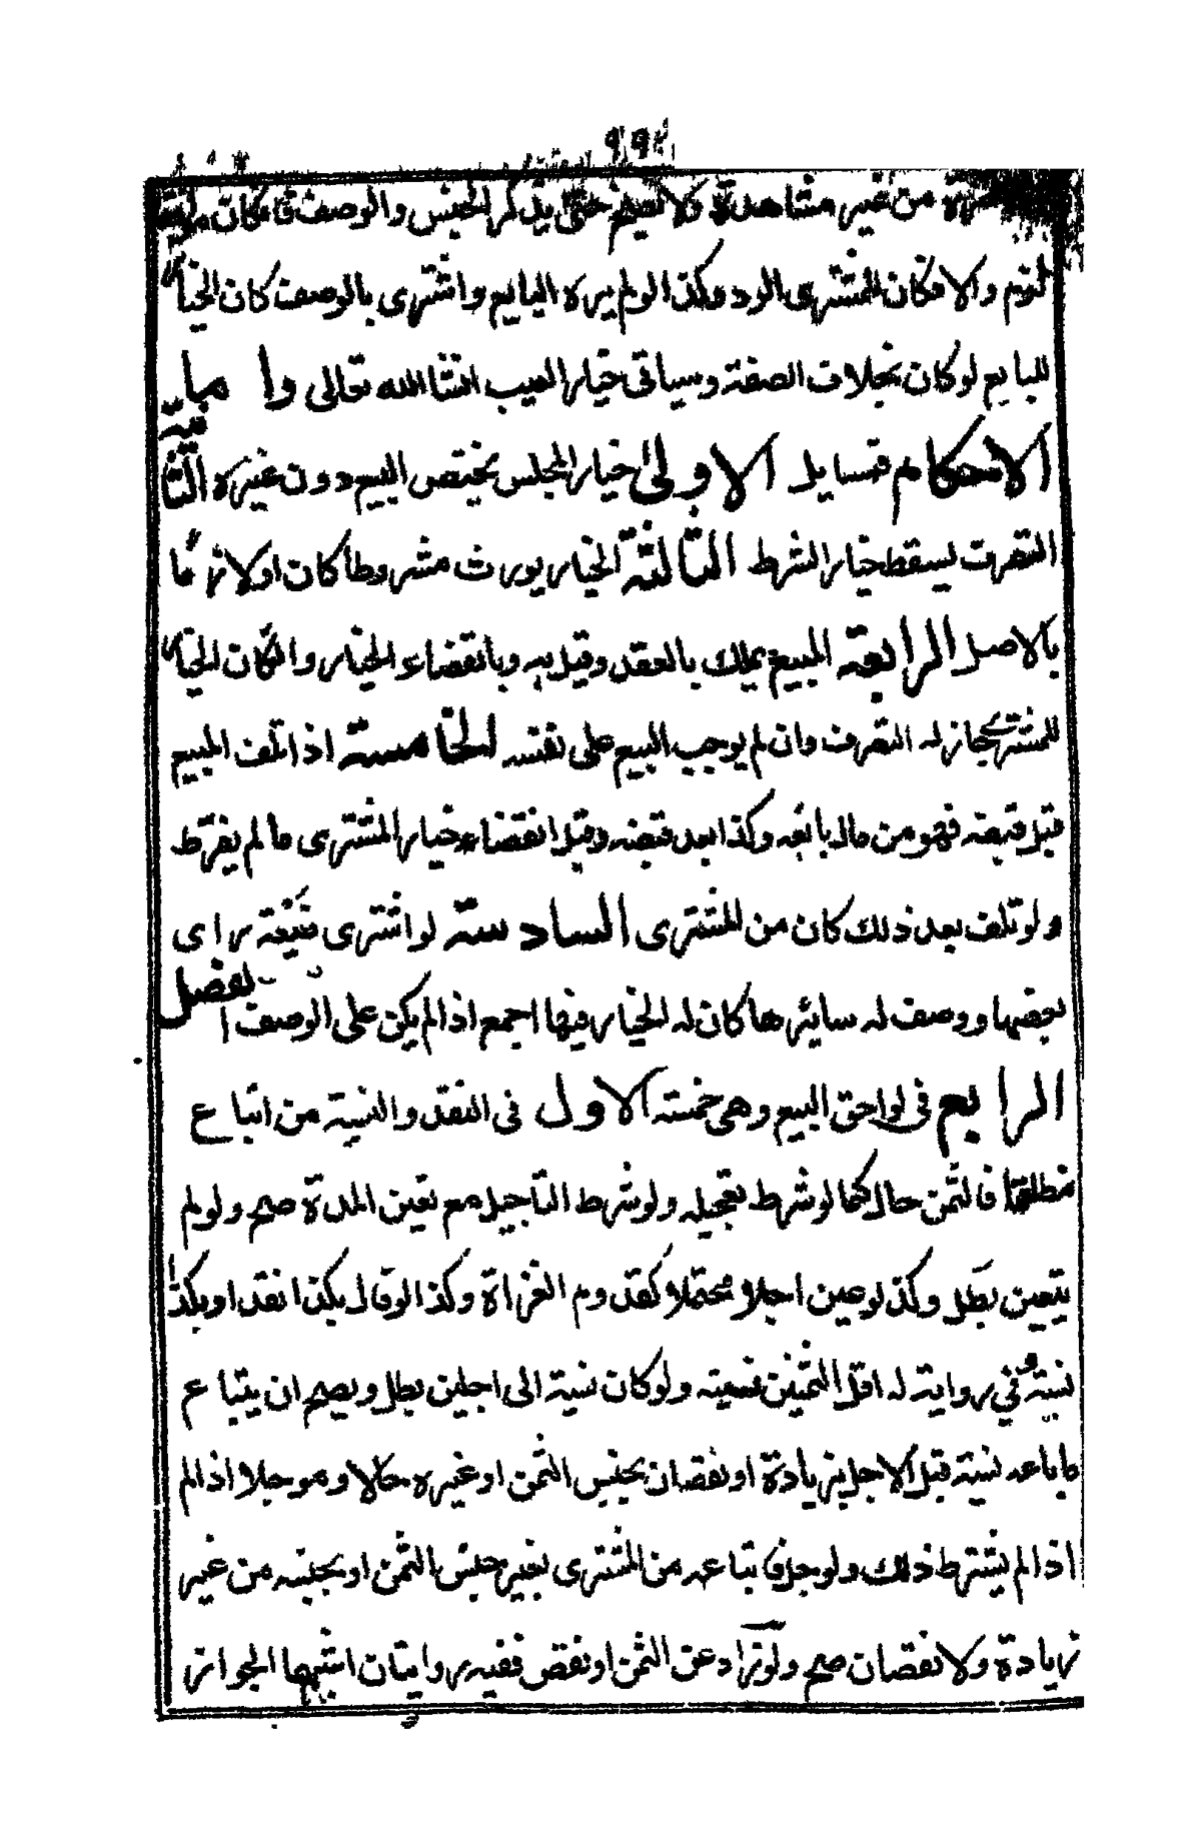 من غير مشاهدة ولا يصح حتى يذكر الجنس والوصف فان كان
لزم والا كان للمشترى الرد وكذا لو لم يره البايع واشترى بالوصف كان الخيار
للبايع لو كان بخلاف الصفة وسياتى خيار العيب انشا الله تعالى واما
الاحكام فمسايل الاولى خيار المجلس يختص البيع دون غيره الثانية
التصرف يسقط خيار الشرط الثالثة الخيار يورث مشروطا كان او لازما
بالاصل الرابعة المبيع يملك بالعقد وقيل به وبانقضاء الخيار وان كان الخيار
للمشترى جاز له التصرف وان لم يوجب البيع على نفسه الخامسة اذا تلف المبيع
قبل قبضه فهو من مال بائعه وكذا بعد قبضه وقبل انقضاء خيار المشترى ما لم يفرط
ولو تلف بعد ذلك كان من المشترى السادسة لو اشترى ضيعة راى
بعضها ووصف له سايرها كان له الخيار فيها اجمع اذا لم يكن على الوصف الفصل
الرابع فى لواحق البيع وهى خمسة الاول فى النقد والنسية من ابتاع
مطلقا فالثمن حال كما لو شرط تعجيله ولو شرط التاجيل مع تعين المدة صح ولو لم
يتعين بطل وكذا لو عين اجلا محتملا كقدوم الغزاة وكذا لو قال بكذا نقدا وبكذا
نسية وفى رواية له اقل الثمنين نسية ولو كان نسية الى اجلين بطل ويصح ان يبتاع
ما باعه نسية قبل الاجل بزيادة او نقصان بجنس الثمن او غيره حالا وموجلا اذا لم
اذا لم يشترط ذلك ولو حل فابتاعه من المشترى بغير جنس الثمن او بجنسه من غير
زيادة ولا نقصان صح ولو زاد عن الثمن او نقص ففيه روايتان اشبهها الجواز